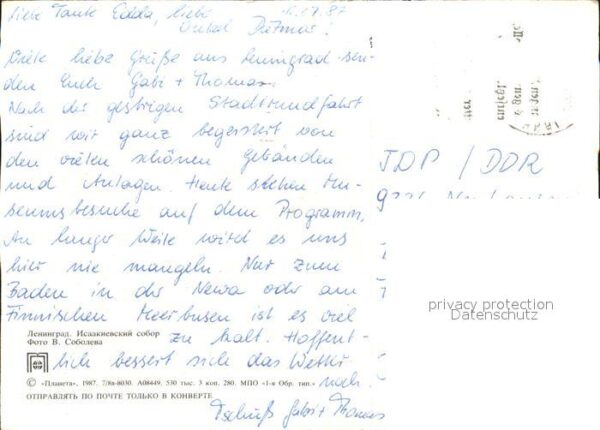 Liebe Tante Edda, lieber
Onkel Dietmar!
Viele liebe Grüße aus Leningrad sen-
den Euch Gabi + Thomas.
Nach der gestrigen Stadtrundfahrt
sind wir ganz begeistert von
den vielen schönen Gebäuden
und Anlagen. Heute stehen Mu-
seumsbesuche auf dem Programm.
An langer Weile wird es uns
hier nie mangeln. Nur zum
Baden in der Newa oder am
Finnischen Meerbusen ist es viel
zu kalt. Hoffent-
lich bessert sich das Wetter
noch!
Tschüß Gabi + Thomas
ГДР / DDR
Ленинград. Исаакиевский собор
Фото В. Соболева
© «Планета», 1987. 7/8а-8030. А08449. 530 тыс. 3 коп. 280. МПО «1-я Обр. тип.»
ОТПРАВЛЯТЬ ПО ПОЧТЕ ТОЛЬКО В КОНВЕРТЕ
privacy protection
Datenschutz